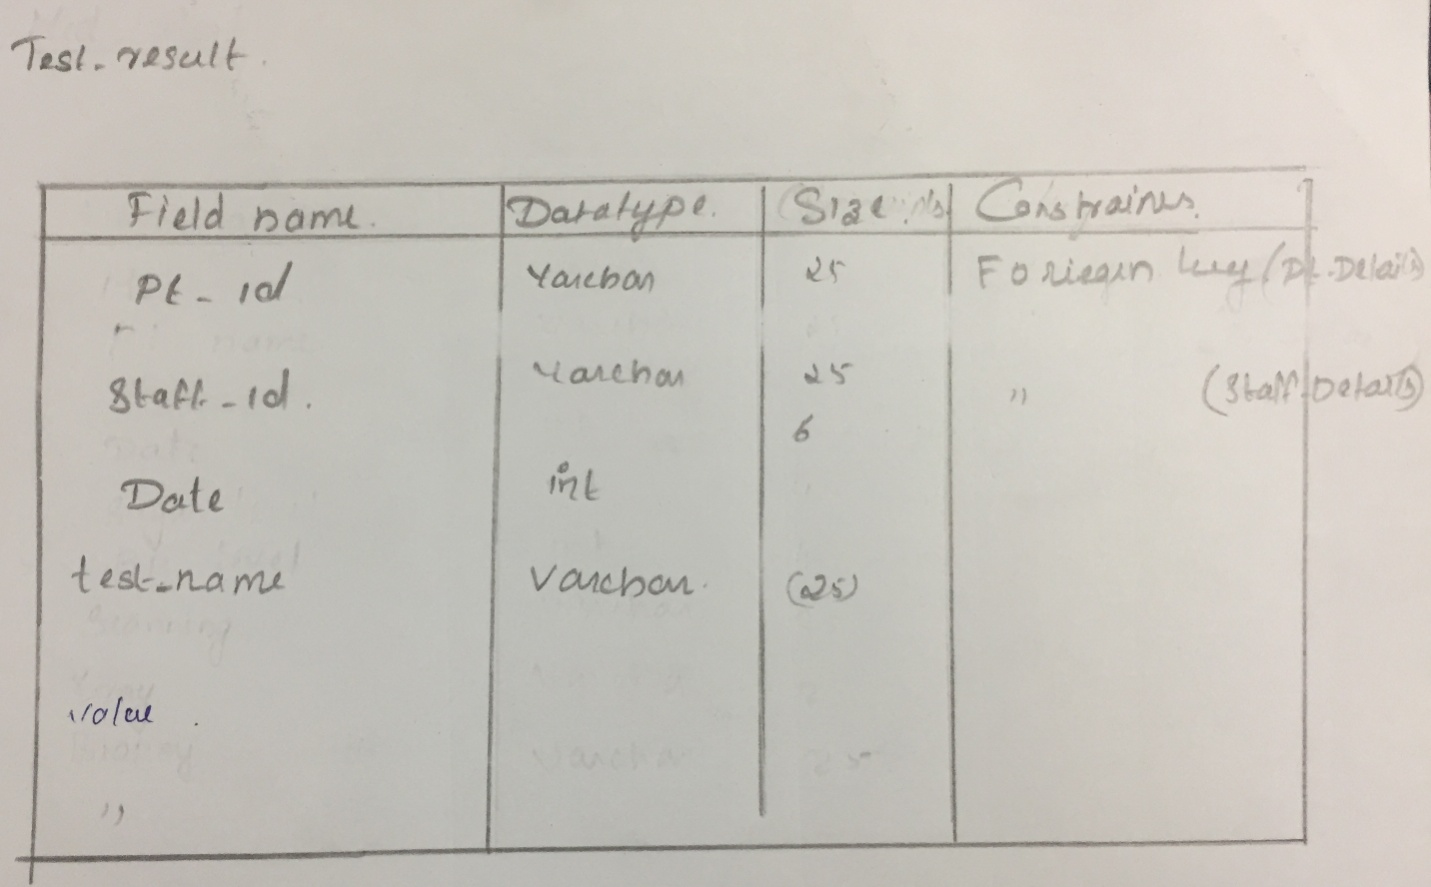 Test_result.
Field name. Datatype. Size Constrains.
Pt_id Varchar 25 Foriegen key (Pt.Details)
Staff_id. Varchar 25 " (Staff.Details)
6
Date int
test_name Varchar. (25)
value .
"